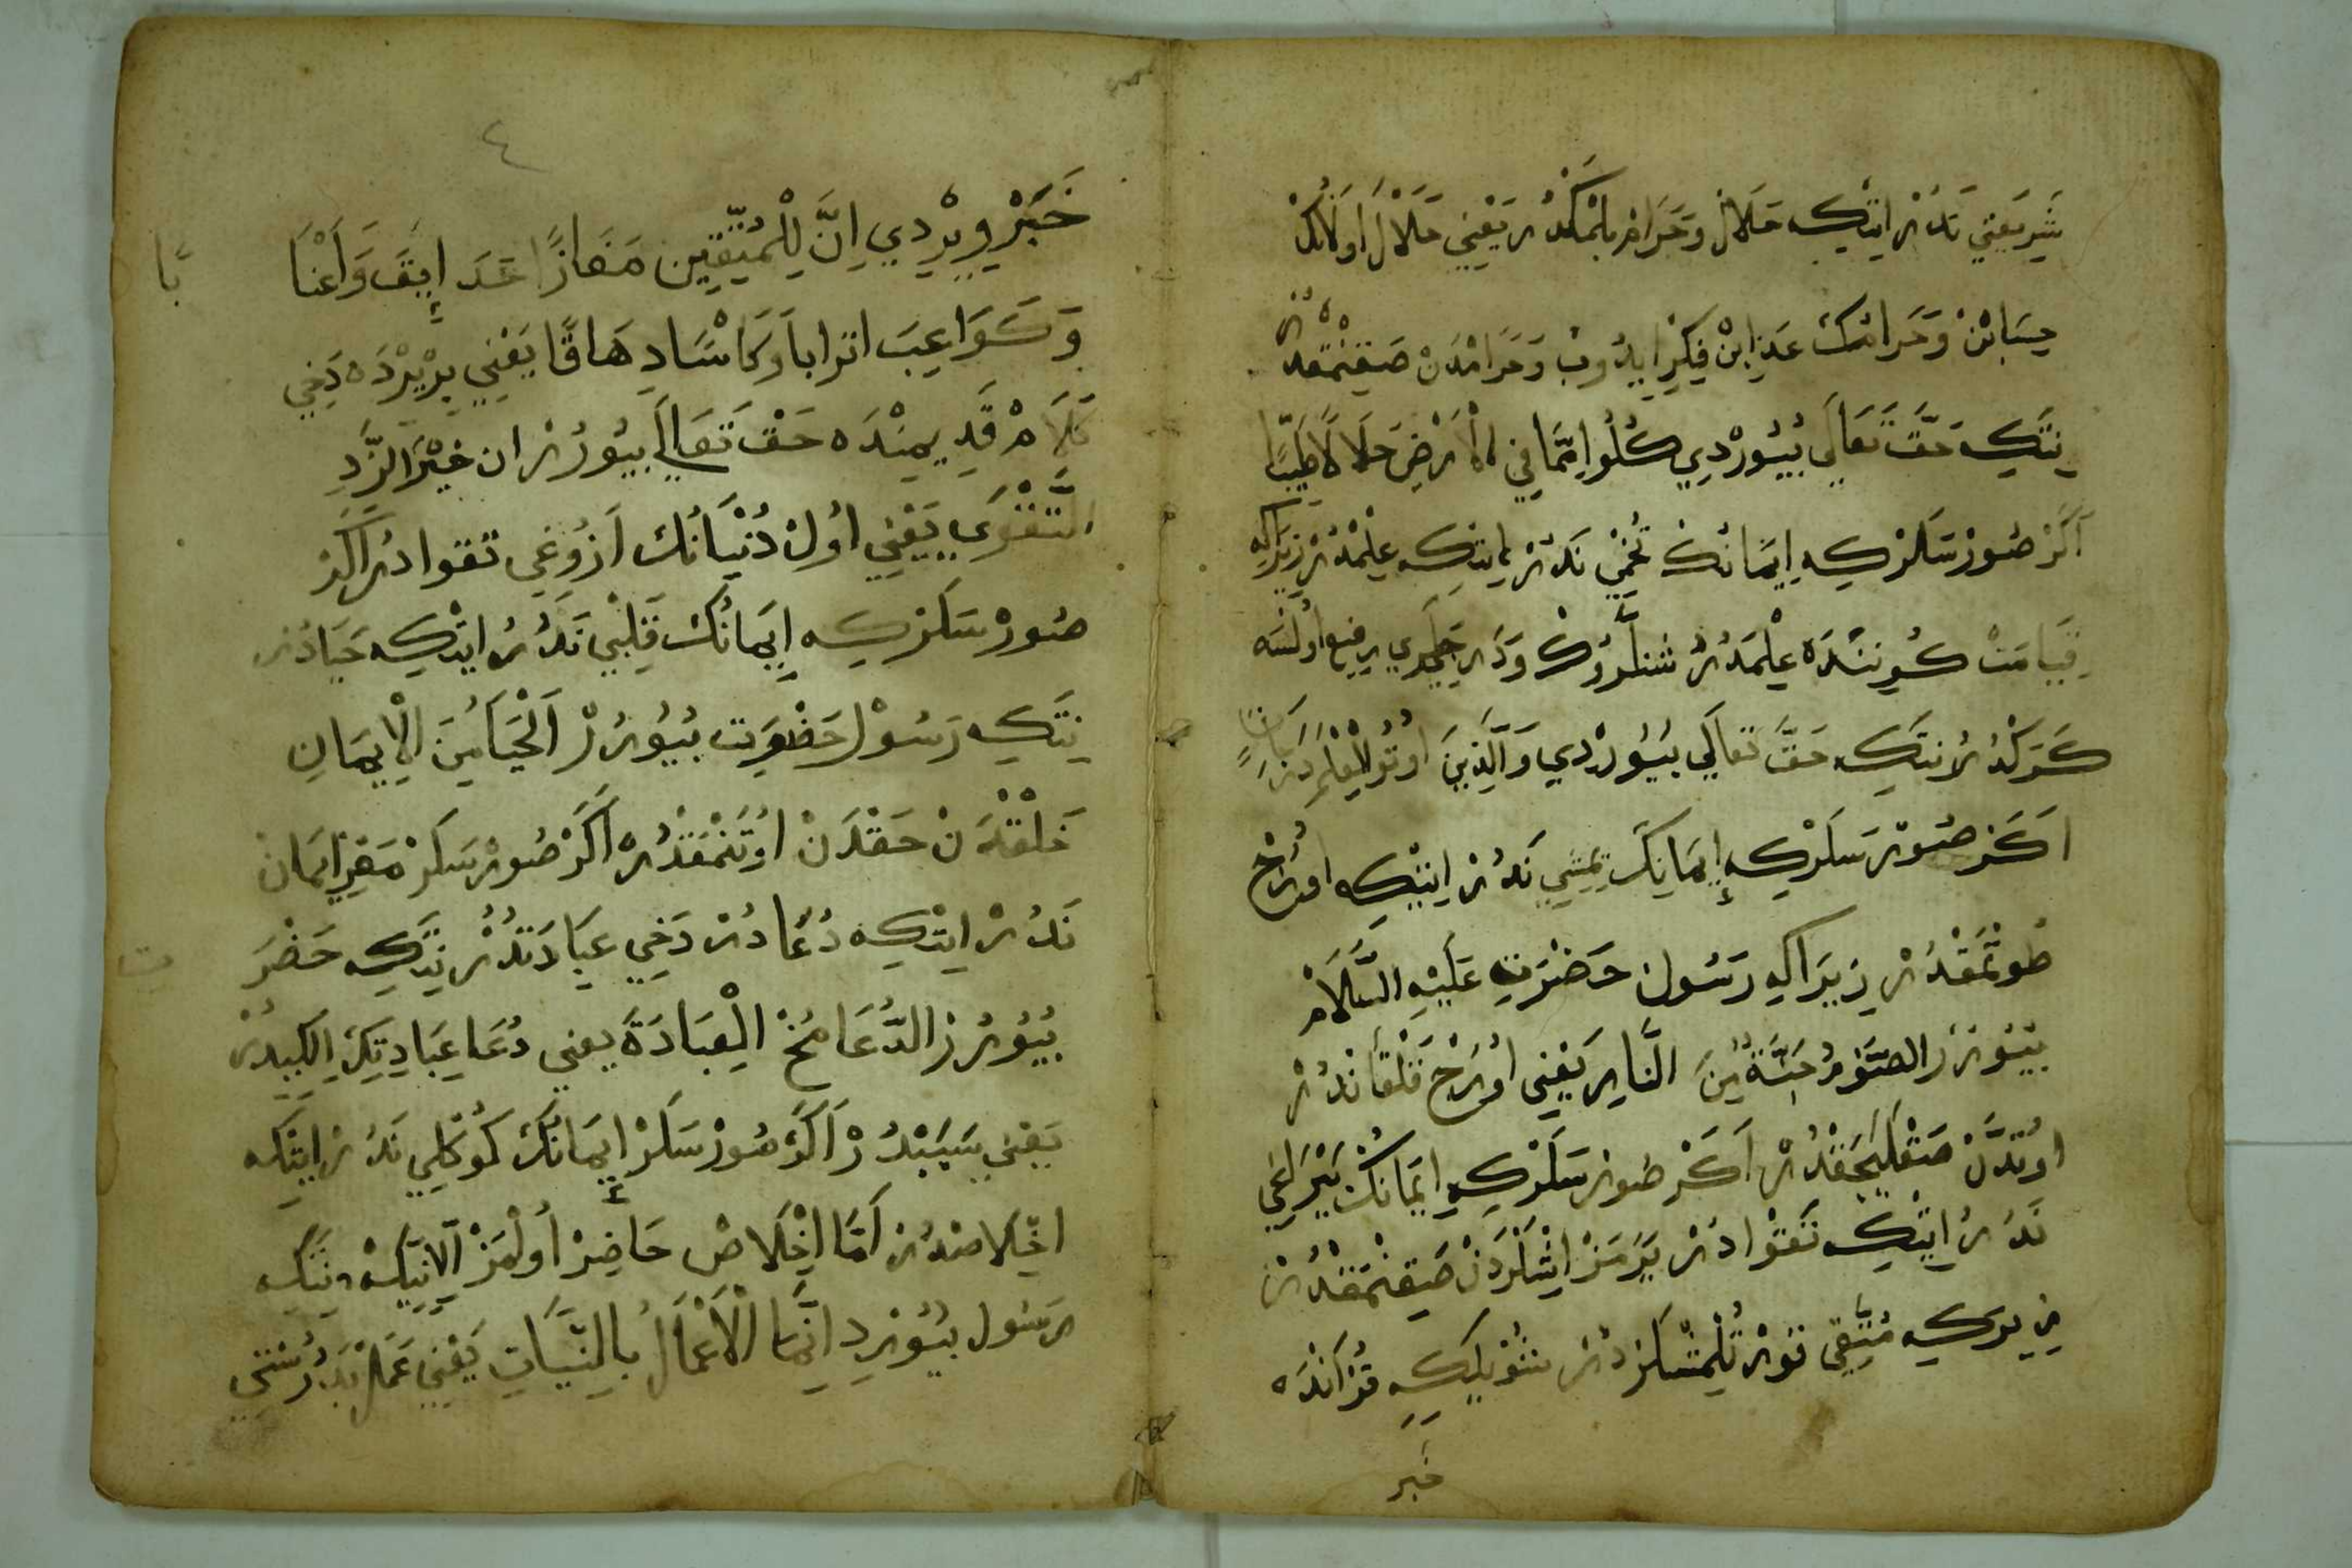 شَرِيعَتِي نَدُرْ ايتكه حَلَالْ وَحَرَامْ بِلْمَكْدُرْ يَعْنِي حَلَالْ اولَانُكْ
حِسَابِنْ وَحَرَامُكْ عَذَابِنْ فِكِرْ ايدُوبْ وَحَرَامْدَنْ صَقِنْمَقْدُرْ
نِتَكِه حَقَّ تَعَالَى بُيُورْدِي كُلُوا مِمَّا فِي الْأَرْضِ حَلَالًا طَيِّبًا
اَكَرْ صُورْسَلَرْكِه اِيمَانُكْ تُخْمِي نَدُرْ ايتكه عِلْمْدُرْ زِيرَاكِه
قِيَامَتْ كُونِنْدَه عِلْمَدُرْ وَدَرَجَلَرِي رفيع اُولْسَه
كَرَكْدُرْ نِتَكِه حَقَّ تَعَالَى بُيُورْدِي وَالَّذِينَ اُوتُوا الْعِلْمَ دَرَجَاتٍ
اَكَرْ صُورْسَلَرْكِه إِيمَانِكْ يَمِشِي نَدُرْ ايتكه اورُجْ
طُوتْمَقْدُرْ زِيرَاكِه رَسُولْ حَضْرَتِ عَلَيْهِ السَّلَامْ
بُيُورُرْ الصَّوْمُ جُنَّةٌ مِنَ النَّارِ يَعْنِي اُورُجْ قَلْقَانْدُرْ
اُوتدَنْ صَقْلَيَجَقْدُرْ اَكَرْ صُورْسَلَرْكِه اِيمَانُكْ يَپْرَاغِي
نَدُرْ ايتكه تَقْوَادُرْ يَرَمَزْ اِيشْلَرْدَنْ صَقِنْمَقْدُرْ
زيركه مُتَّقِي قُورْتُلْمِشْلَرْدُرْ شُويلَكِه قُرْآنْدَه
خبر
٤
خَبَرْ وِيرْدِي اِنَّ لِلْمُتَّقِينَ مَفَازًا حَدَائِقَ وَاَعْنَا
بًا
وَكَوَاعِبَ اترابا وَكَاْسًا دِهَاقًا يَعْنِي بِرْيَرْدَه دَخِي
كَلَامْ قَدِيمِنْدَه حَقْ تَعَالَى بُيُورُرْ ان خَيْرَ الزَّادِ
التَّقْوَى يَعْنِي اُولْ دُنْيَانُكْ اَزُوغِي تقوادُرْ اَكَرْ
صُورْسَلَرْكِه اِيمَانُكْ قَلْبِي نَدُرْ ايتكه حَيَادُرْ
نِتَكِه رَسُولْ حَضْرَتِ بُيُورُرْ اَلْحَيَاءُ مِنَ الْاِيمَانِ
خَلْقْدَنْ حَقْدَنْ اُوتَنْمَقْدُرْ اَكَرْ صُورْسَلَرْ مَغْزِ اِيمَانْ
نَدُرْ ايتكه دُعَادُرْ دَخِي عِبَادَتْدُرْ نِتَكِه حَضْرَ
ت
بُيُورُرْ الدُّعَا مُخُّ الْعِبَادَةِ يعني دُعَا عِبَادِتِكْ اِلِكِيدُرْ
يَعْنِي سَبَبْدُرْ اَكَرْ صُورْسَلَرْ اِيمَانُكْ كُوكْلِي نَدُرْ ايتكه
اخْلَاصْدُرْ اَمَّا اِخْلَاصْ حَاضِرْ اُولْمَزْ اِلَّا نِيَّتْ نِتَكِه
رَسُول بُيُورْدِ اِنَّمَا الْاَعْمَالُ بِالنِّيَّاتِ يَعْنِي عَمَلْ دُرُسْتِي